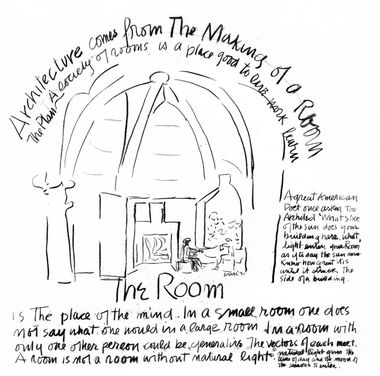 Architecture comes from The Making of a Room
The Plan A society of rooms is a place good to live work learn
A great American
Poet once asked The
Architect 'What slice
of the sun does your
building have. What
light enters your Room
as if to say the sun never
knew how great it is
until it struck the
side of a building.
The Room
is The place of the mind. In a small room one does
not say what one would in a large room In a room with
only one other person could be generative The vectors of each meet.
A room is not a room without natural light
natural light gives the
time of day and the mood of
the seasons to enter.